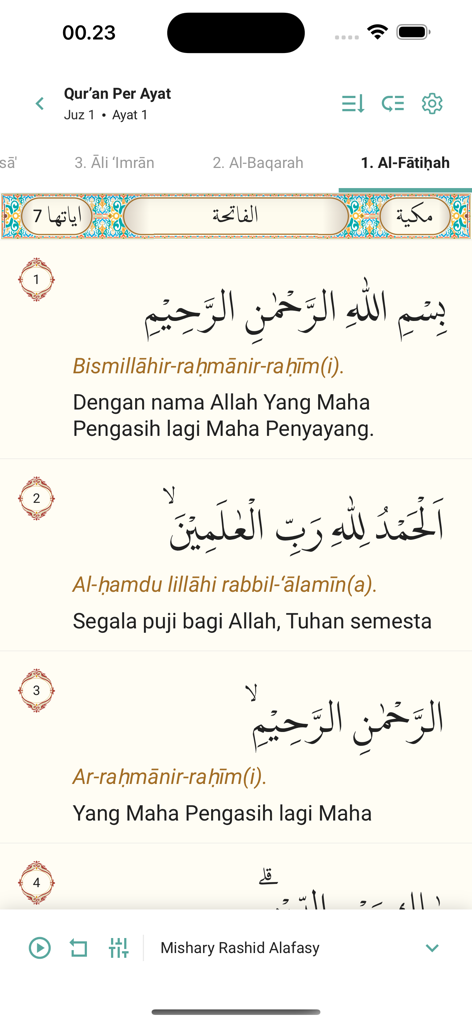 00.23
Qur'an Per Ayat
Juz 1 • Ayat 1
sā' 3. Āli 'Imrān 2. Al-Baqarah 1. Al-Fātiḥah
مكية الفاتحة اياتها 7
1
بِسْمِ اللّٰهِ الرَّحْمٰنِ الرَّحِيْمِ
Bismillāhir-raḥmānir-raḥīm(i).
Dengan nama Allah Yang Maha
Pengasih lagi Maha Penyayang.
2
اَلْحَمْدُ لِلّٰهِ رَبِّ الْعٰلَمِيْنَۙ
Al-ḥamdu lillāhi rabbil-'ālamīn(a).
Segala puji bagi Allah, Tuhan semesta
3
الرَّحْمٰنِ الرَّحِيْمِۙ
Ar-raḥmānir-raḥīm(i).
Yang Maha Pengasih lagi Maha
4
Mishary Rashid Alafasy